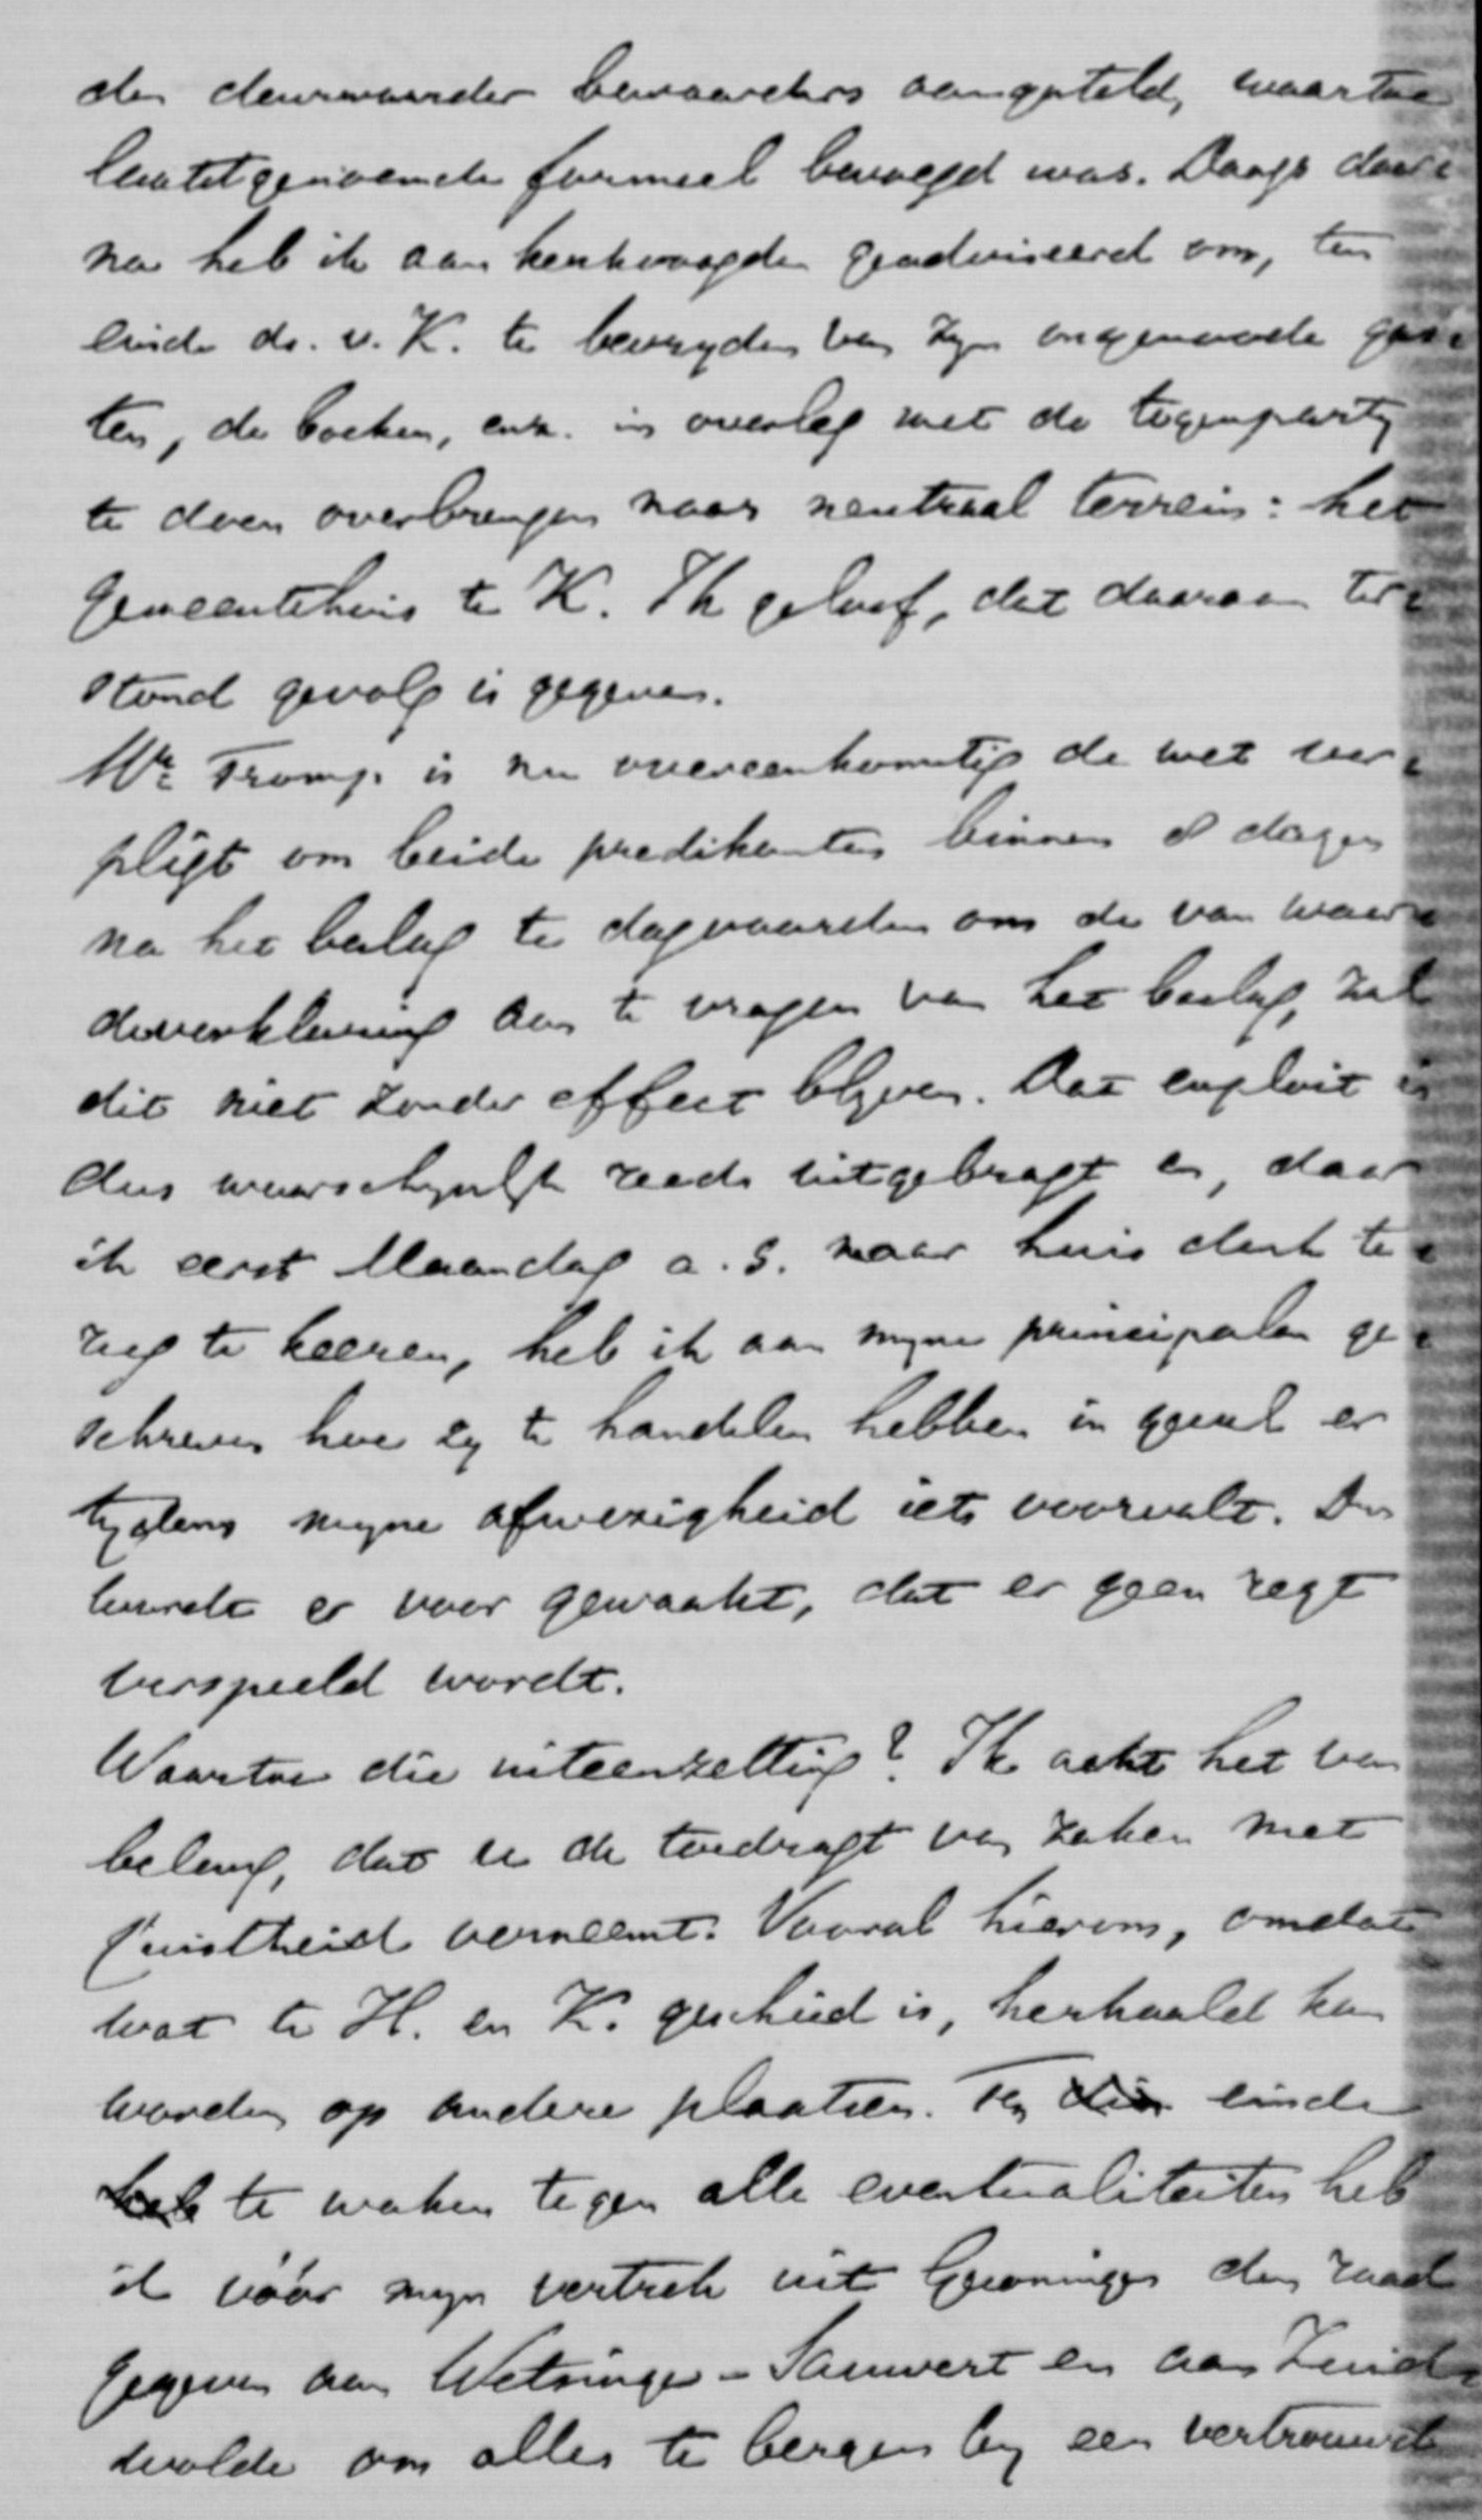 den deurwaarder bewaarders aangesteld, waartoe
laatstgenoemde formeel bevoegd was. Daags daar=
na heb ik aan kerkvoogden geadviseerd om, ten
einde ds. v. K. te bevryden van zyn ongenoode gas=
ten, de boeken, enz. in overleg met de tegenparty
te doen overbrengen naar neutraal terrein: het
gemeentehuis te K. Ik geloof, dat daaraan ter=
stond gevolg is gegeven.
Mr. Tromp is nu overeenkomstig de wet ver=
pligt om beide predikanten binnen 8 dagen
na het beslag te dagvaarden om de van waar=
deverklaring aan te vragen van het beslag, zal
dit niet zonder effect blyven. Dat exploit is
dus waarschynlyk reeds uitgebragt en, daar
ik eerst Maandag a.s. naar huis denk te=
rug te keeren, heb ik aan myne principalen ge=
schreven hoe zy te handelen hebben in geval er
tydens myne afwezigheid iets voorvalt. Dus
wordt er voor gewaakt, dat er geen regt
verspeeld wordt.
Waartoe die uiteenzetting? Ik acht het van
belang, dat u de toedragt van zaken met
juistheid verneemt. Vooral hierom, omdat
wat te H. en K. geschied is, herhaald kan
worden op andere plaatsen. Ten die einde
heb te waken tegen alle eventualiteiten heb
ik vóór myn vertrek uit Groningen den raad
gegeven aan Wetsinge-Sauwert en aan Zuid=
wolde om alles te bergen by een vertrouwd